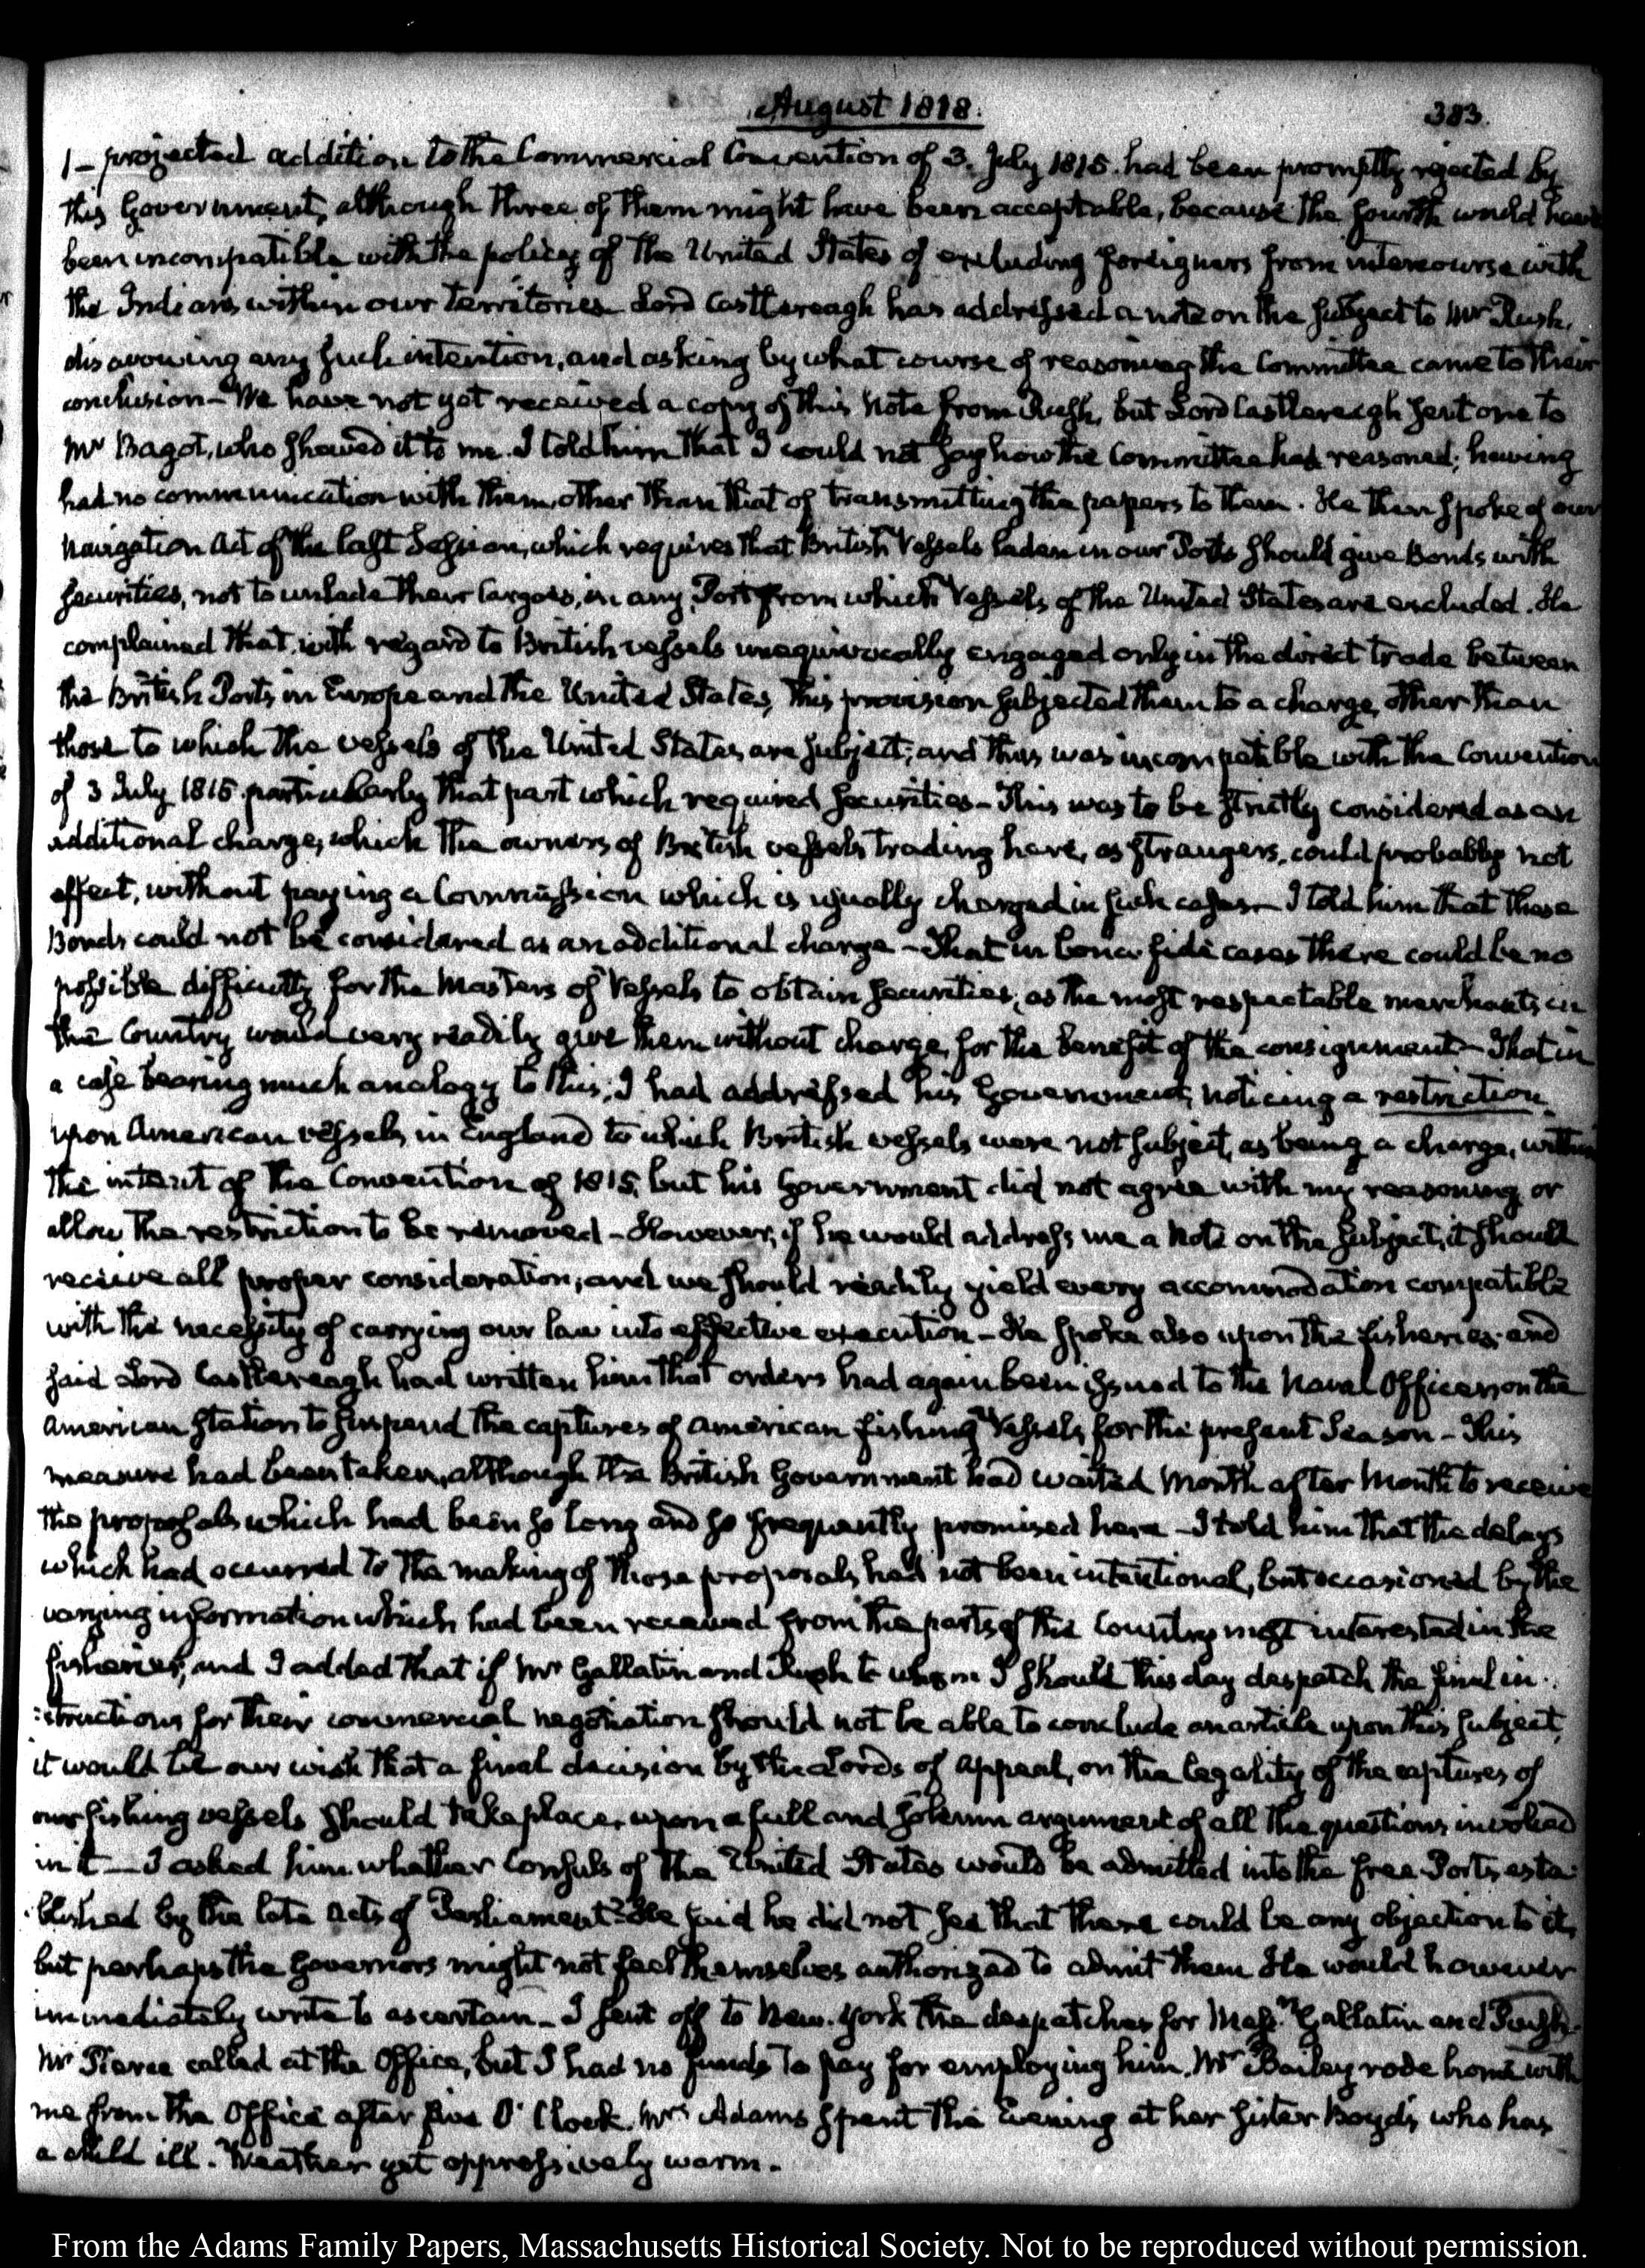 August 1818.
383.
1– projected addition to the Commercial Convention of 3. July 1815. had been promptly rejected by
this Government, although three of them might have been acceptable, because the fourth would have
been incompatible with the policy of the United States of excluding foreigners from intercourse with
the Indians within our territories. Lord Castlereagh has addressed a note on the subject to Mr Rush,
disavowing any such intention, and asking by what course of reasoning the Committee came to their
conclusion– We have not yet received a copy of this Note from Rush, but Lord Castlereagh sent one to
Mr Bagot, who showed it to me. I told him that I could not say how the Committee had reasoned; having
had no communication with them, other than that of transmitting the papers to them. He then spoke of our
Navigation Act of the last Session, which requires that British Vessels laden in our Ports should give Bonds with
securities, not to unlade their Cargoes, in any Port from which Vessels of the United States are excluded. He
complained that, with regard to British vessels unequivocally engaged only in the direct trade between
the British Ports in Europe and the United States, this provision subjected them to a charge, other than
those to which the vessels of the United States are subject; and thus was incompatible with the Convention
of 3 July 1815 particularly that part which required securities– This was to be strictly considered as an
additional charge, which the owners of British vessels trading here, as strangers, could probably not
effect, without paying a Commission which is usually charged in such cases– I told him that those
Bonds could not be considered as an additional charge– That in bona fide cases there could be no
possible difficulty for the Masters of Vessels to obtain securities, as the most respectable merchants in
the Country would very readily give them without charge, for the benefit of the consignment– That in
a case bearing much analogy to this, I had addressed his Government, noticing a restriction
upon American vessels in England to which British vessels were not subject, as being a charge, within
the intent of the Convention of 1815, but his Government did not agree with my reasoning or
allow the restriction to be removed– However, if he would address me a Note on the subject, it should
receive all proper consideration; and we should readily yield every accommodation compatible
with the necessity of carrying our law into effective execution– He spoke also upon the fisheries; and
said Lord Castlereagh had written him that orders had again been issued to the Naval Officers on the
American Station to suspend the captures of American fishing Vessels for the present Season– This
measure had been taken, although the British Government had waited Month after Month to receive
the proposals which had been so long and so frequently promised here– I told him that the delays
which had occurred to the making of those proposals had not been intentional, but occasioned by the
varying information which had been received from the parts of this Country most interested in the
fisheries, and I added that if Mr Gallatin and Rush to whom I should this day despatch the final in
:structions for their commercial negotiation should not be able to conclude an article upon this subject,
it would be our wish that a final decision by the Lords of Appeal, on the legality of the captures of
our fishing vessels should take place, upon a full and solemn argument of all the questions involved
in it– I asked him whether Consuls of the United States would be admitted into the free Ports esta:
:blished by the late Acts of Parliament? He said he did not see that there could be any objection to it,
but perhaps the Governors might not feel themselves authorized to admit them. He would however
immediately write to ascertain– I sent off to New-York the despatches for Messrs Gallatin and Rush.
Mr Pierce called at the Office, but I had no funds to pay for employing him. Mr Bailey rode home with
me from the Office after five O'Clock. Mrs Adams spent the Evening at her Sister Boyd's, who has
a child ill. Weather yet oppressively warm.
From the Adams Family Papers, Massachusetts Historical Society. Not to be reproduced without permission.